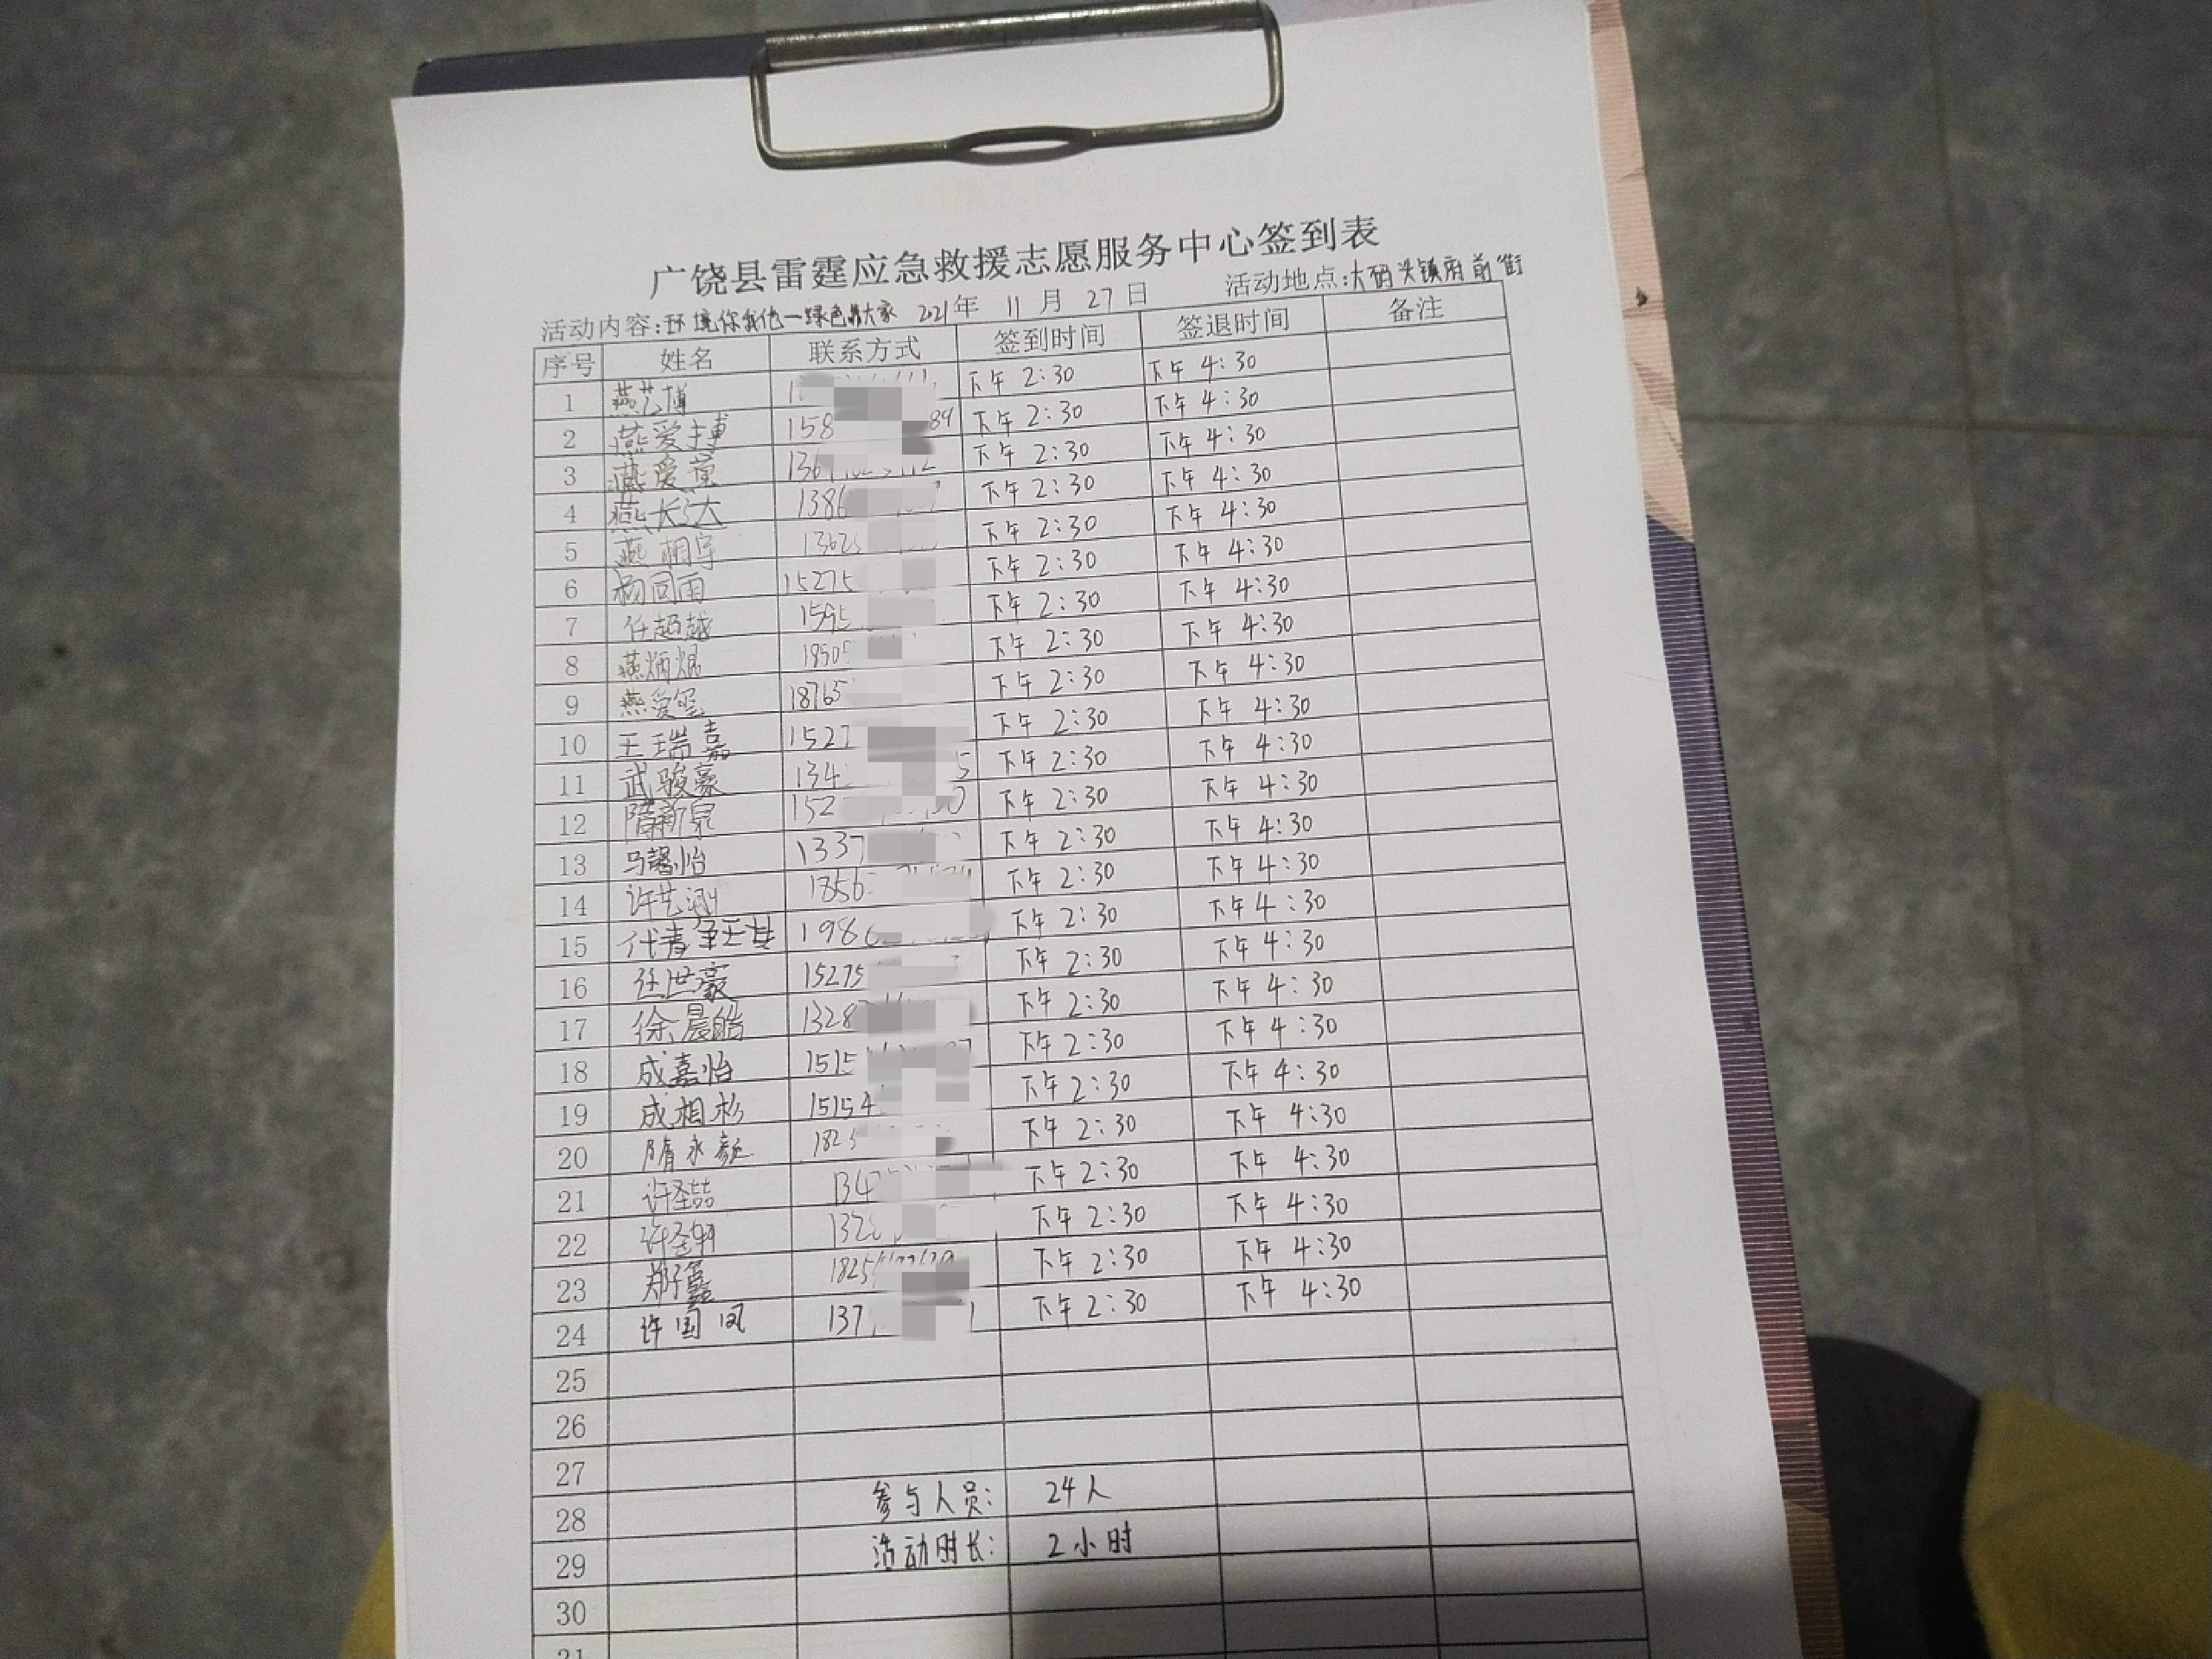 广饶县雷霆应急救援志愿服务中心签到表
活动内容:环境你我他一绿色靠大家 2021年 11月 27日 活动地点:大码头镇府前街
序号 姓名 联系方式 签到时间 签退时间 备注
1 燕艺博 下午 2:30 下午 4:30
2 燕爱博 158 89 下午 2:30 下午 4:30
3 燕爱萱 下午 2:30 下午 4:30
4 燕 138 下午 2:30 下午 4:30
5 燕相宇 下午 2:30 下午 4:30
6 杨同雨 15275 下午 2:30 下午 4:30
7 任超越 1595 下午 2:30 下午 4:30
8 燕炳焜 1850 下午 2:30 下午 4:30
9 燕爱玺 18765 下午 2:30 下午 4:30
10 王瑞嘉 1527 下午 2:30 下午 4:30
11 武骏豪 134 5 下午 2:30 下午 4:30
12 隋新泉 152 0 下午 2:30 下午 4:30
13 马馨怡 1337 下午 2:30 下午 4:30
14 许艺 1856 下午 2:30 下午 4:30
15 代青 1986 下午 2:30 下午 4:30
16 任世豪 15275 下午 2:30 下午 4:30
17 徐晨皓 1328 下午 2:30 下午 4:30
18 成嘉怡 1515 下午 2:30 下午 4:30
19 成相杉 15154 下午 2:30 下午 4:30
20 隋永 182 下午 2:30 下午 4:30
21 许圣喆 134 下午 2:30 下午 4:30
22 许圣轩 132 下午 2:30 下午 4:30
23 郑子鑫 1825 下午 2:30 下午 4:30
24 许国凤 137 1 下午 2:30 下午 4:30
25
26
27
28 参与人员: 24人
29 活动时长: 2小时
30
31